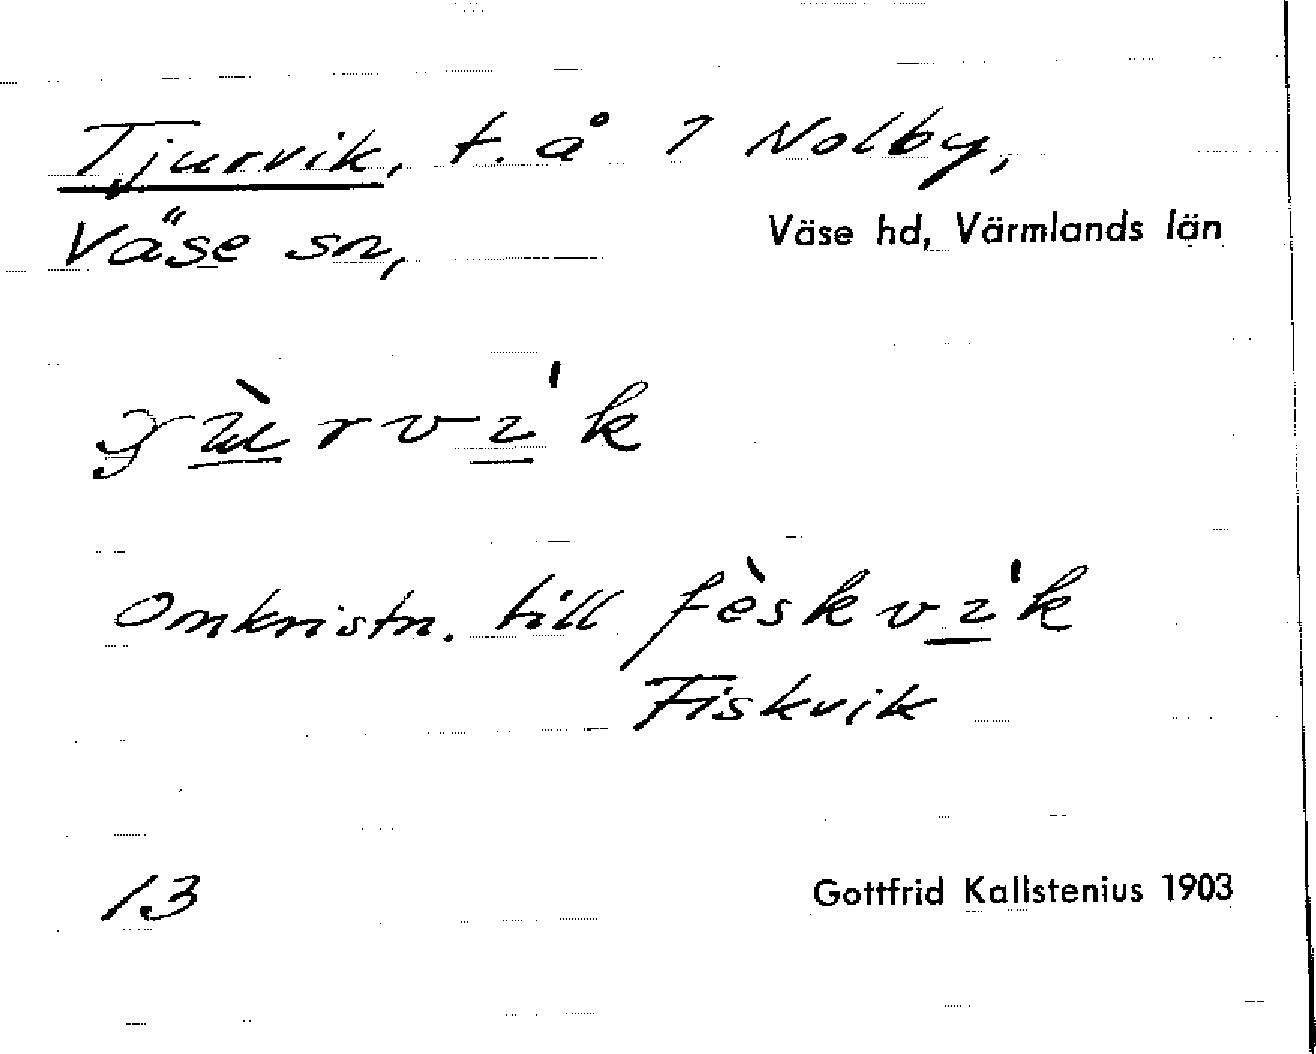 Tjurvik, t. å 1 Nolby,
Väse sn, Väse hd, Värmlands län
rvi'k
Omkristn. till fèskvi'k
Fiskvik
13 Gottfrid Kallstenius 1903